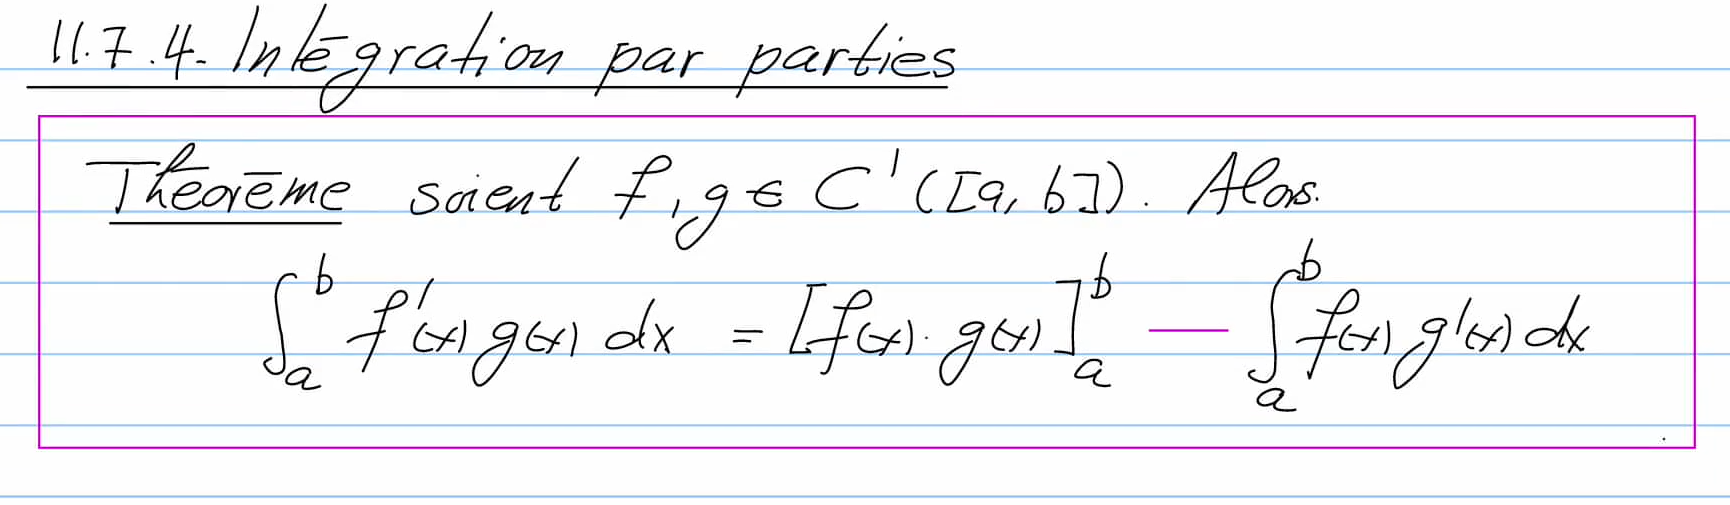 11.7.4. Intégration par parties
Théorème soient f, g ∈ C¹([a, b]). Alors.
∫_a^b f'(x) g(x) dx = [f(x) · g(x)]_a^b — ∫_a^b f(x) g'(x) dx